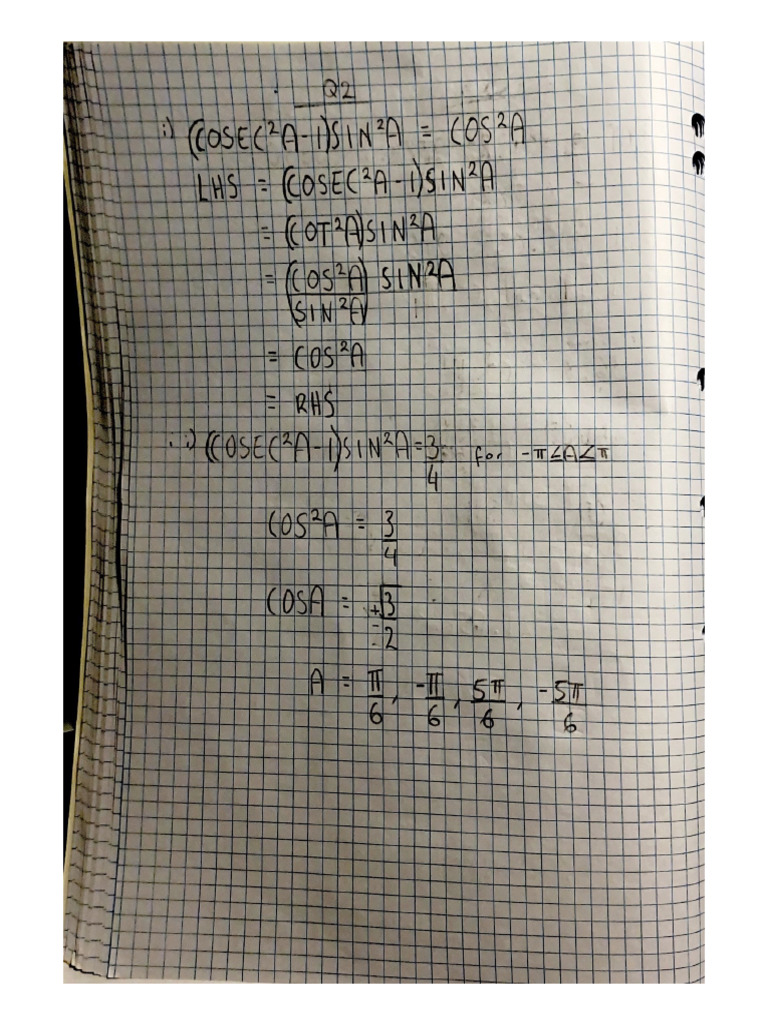 Q2
i) (COSEC²A-1)SIN²A = COS²A
LHS = (COSEC²A-1)SIN²A
= (COT²A)SIN²A
= (COS²A/SIN²A) SIN²A
= COS²A
= RHS
ii) (COSEC²A-1)SIN²A = 3/4 for -π∠A∠π
COS²A = 3/4
COSA = ±√3/2
A = π/6, -π/6, 5π/6, -5π/6